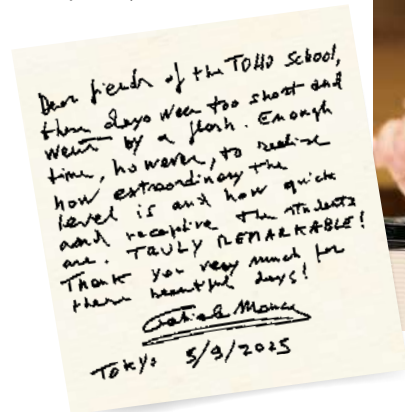 Dear friends of the TOHO School,
these days were too short and
went by a flash. Enough
time, however, to realize
how extraordinary the
level is and how quick
and receptive the students
are. TRULY REMARKABLE!
Thank you very much for
these beautiful days!
Tokyo 5/9/2025